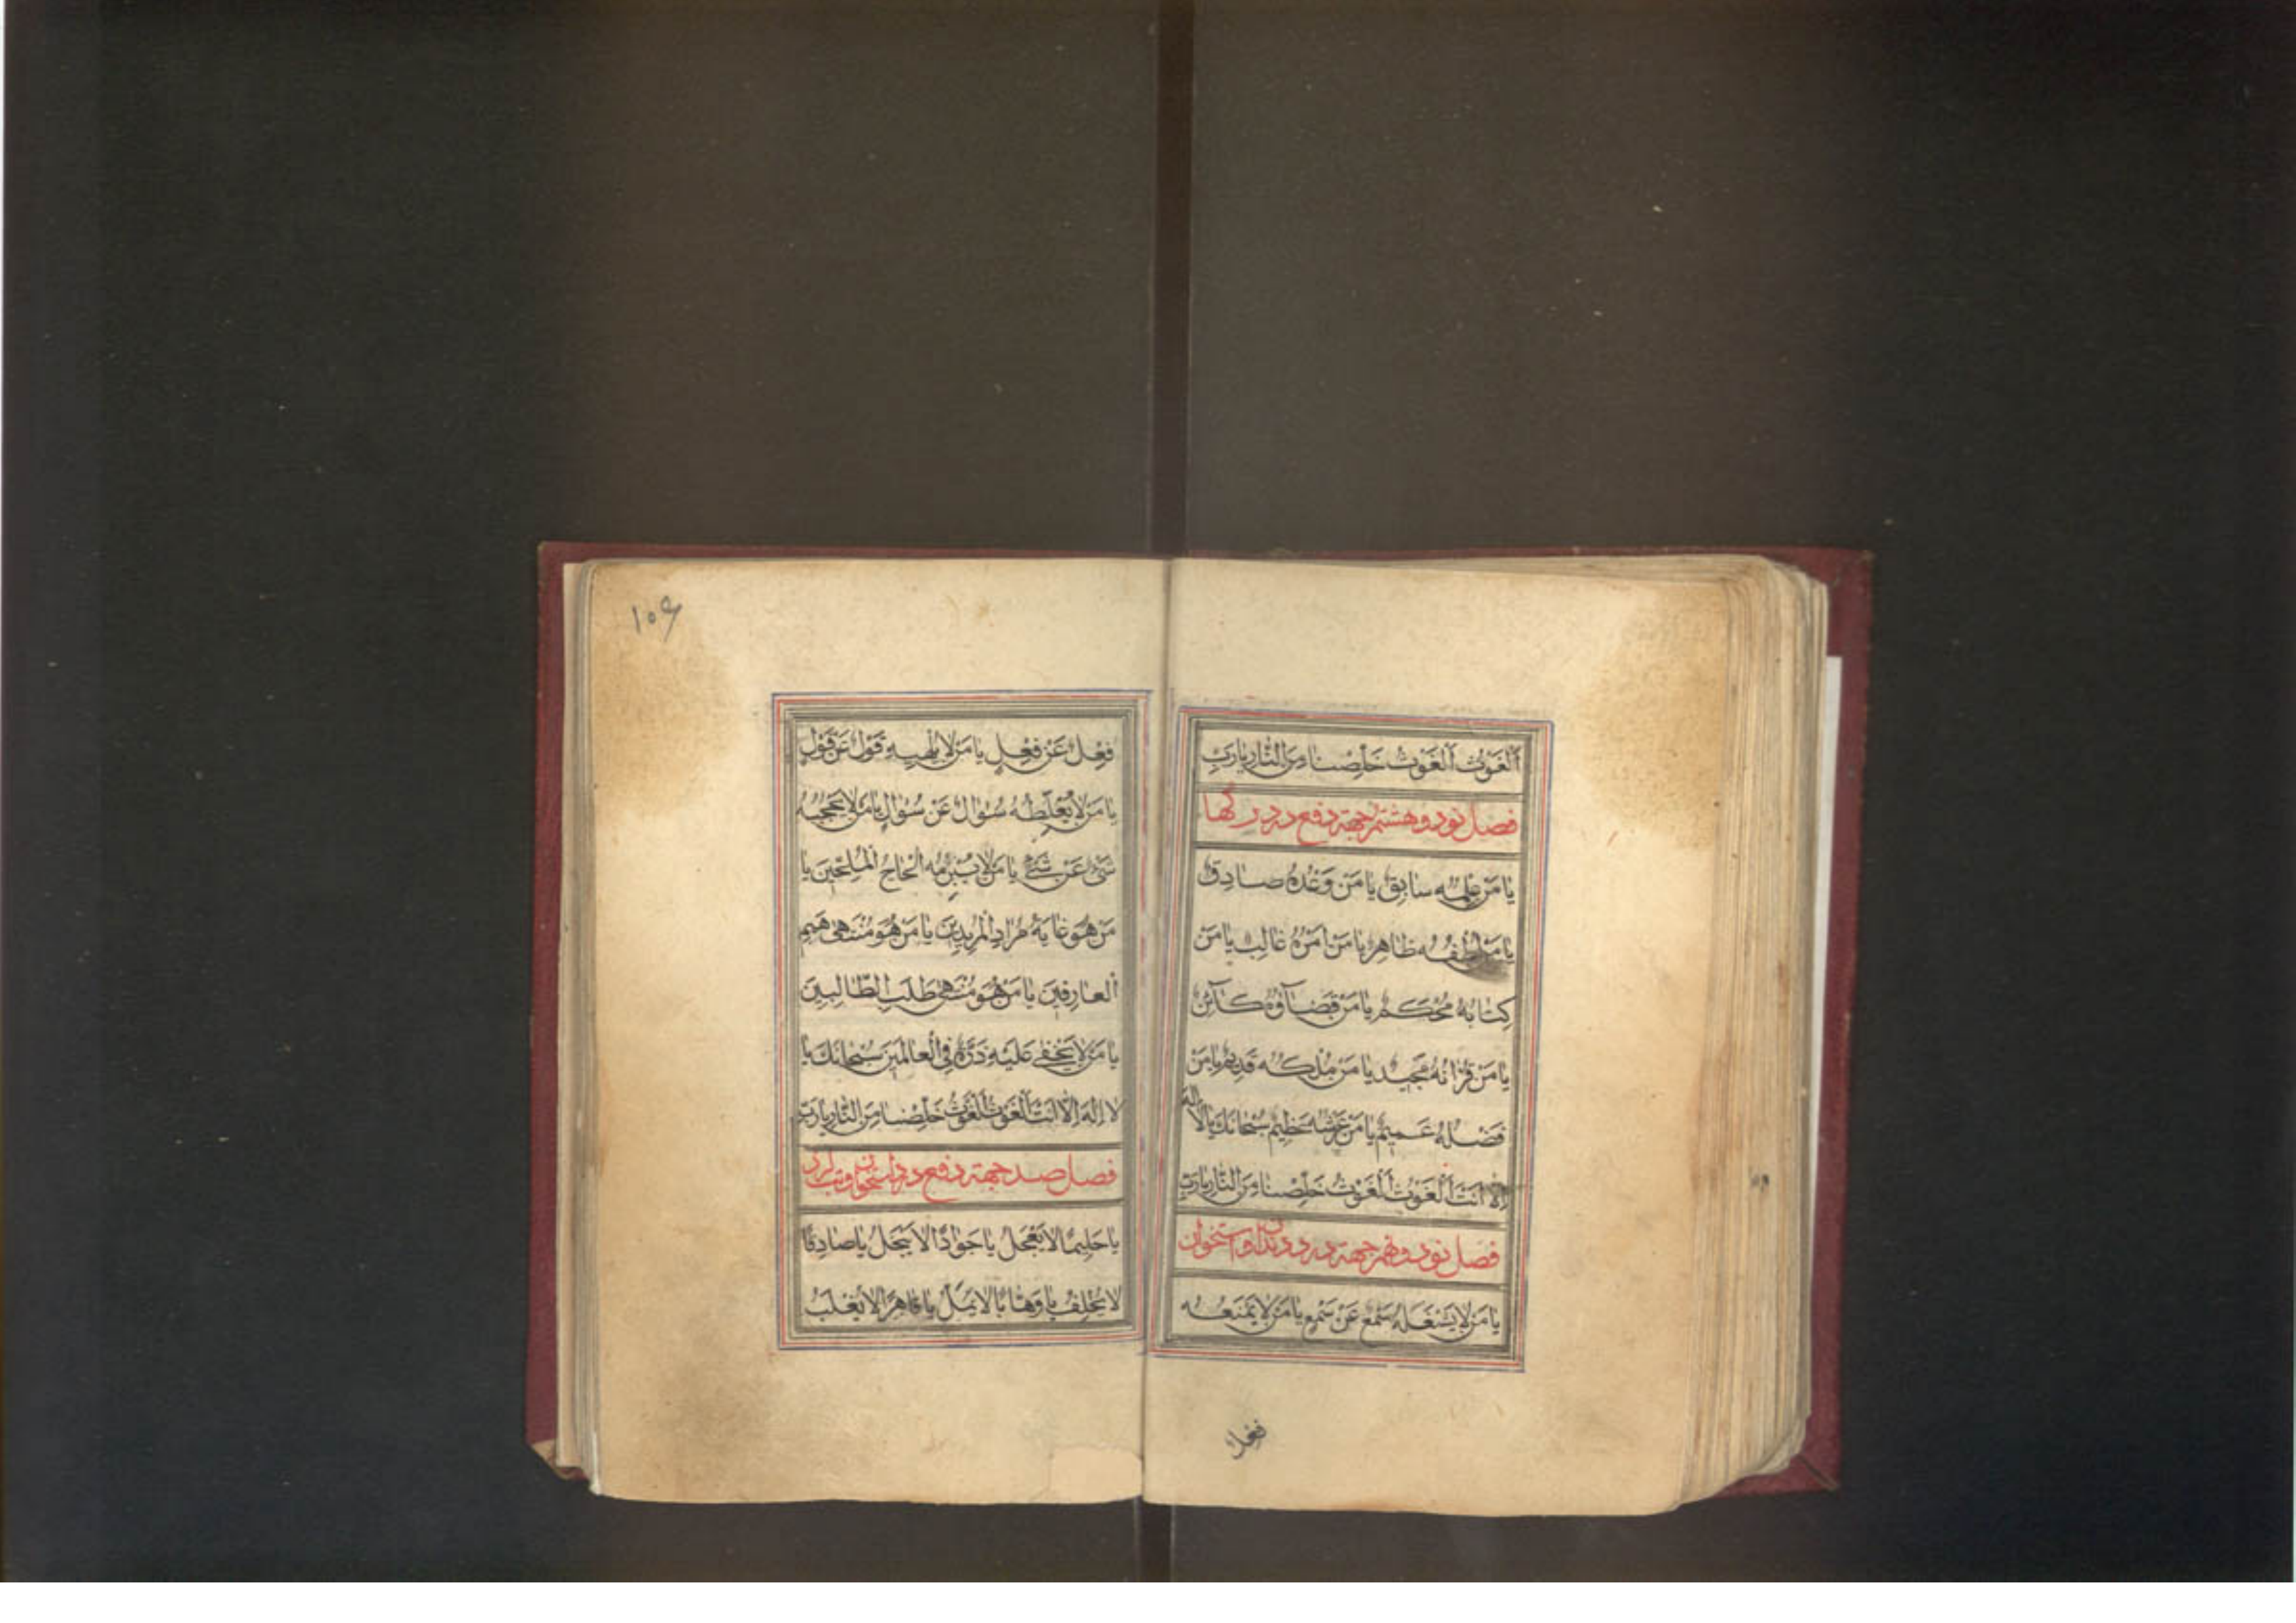 اَلْغَوْثَ اَلْغَوْثَ خَلِّصْنا مِنَ النّارِ يا رَبِّ
فصل نود و هشتم جهة دفع درد رگها
يا مَنْ عِلْمُه سابِقٌ يا مَنْ وَعْدُهُ صادِقٌ
يا مَنْ لُطْفُه ظاهِرٌ يا مَنْ اَمْرُهُ غالِبٌ يا مَنْ
كِتابُهُ مُحْكَمٌ يا مَنْ قَضآؤُهُ كآئِنٌ
يا مَنْ قُرْانُهُ مَجيدٌ يا مَنْ مُلْكُه قَديمٌ يا مَنْ
فَضْلُهُ عَميمٌ يا مَنْ عَرْشُه عَظيمٌ سُبْحانَكَ يا لا اله
اِلاّ اَنْتَ اَلْغَوْثَ اَلْغَوْثَ خَلِّصْنا مِنَ النّارِ يا رَبِّ
فصل نود و نهم جهة درد دندان و استخوان
يا مَنْ لا يَشْغَلُهُ سَمْعٌ عَنْ سَمْعٍ يا مَنْ لا يَمْنَعُه
فِعْلٌ
١٠٩
فِعْلٌ عَنْ فِعْلٍ يا مَنْ لا يُلْهيهِ قَوْلٌ عَنْ قَوْلٍ
يا مَنْ لا يُغَلِّطُه سُؤالٌ عَنْ سُؤالٍ يا مَنْ لا يَحْجُبُه
شَىْءٌ عَنْ شَىْءٍ يا مَنْ لا يُبْرِمُه اِلْحاحُ الْمُلِحّينَ يا
مَنْ هُوَ غايَةُ مُرادِ الْمُريدينَ يا مَنْ هُوَ مُنْتَهى هِمَمِ
الْعارِفينَ يا مَنْ هُوَ مُنْتَهى طَلَبِ الطّالِبينَ
يا مَنْ لا يَخْفى عَلَيْهِ ذَرَّةٌ فِى الْعالَمينَ سُبْحانَكَ يا
لا اِلهَ اِلاّ اَنْتَ اَلْغَوْثَ اَلْغَوْثَ خَلِّصْنا مِنَ النّارِ يا رَبِّ
فصل صد جهة دفع درد استخوان و تب لرز
يا حَليمًا لا يَعْجَلُ يا جَوادًا لا يَبْخَلُ يا صادِقًا
لا يُخْلِفُ يا وَهّابًا لا يَمَلُّ يا قاهِرًا لا يُغْلَبُ